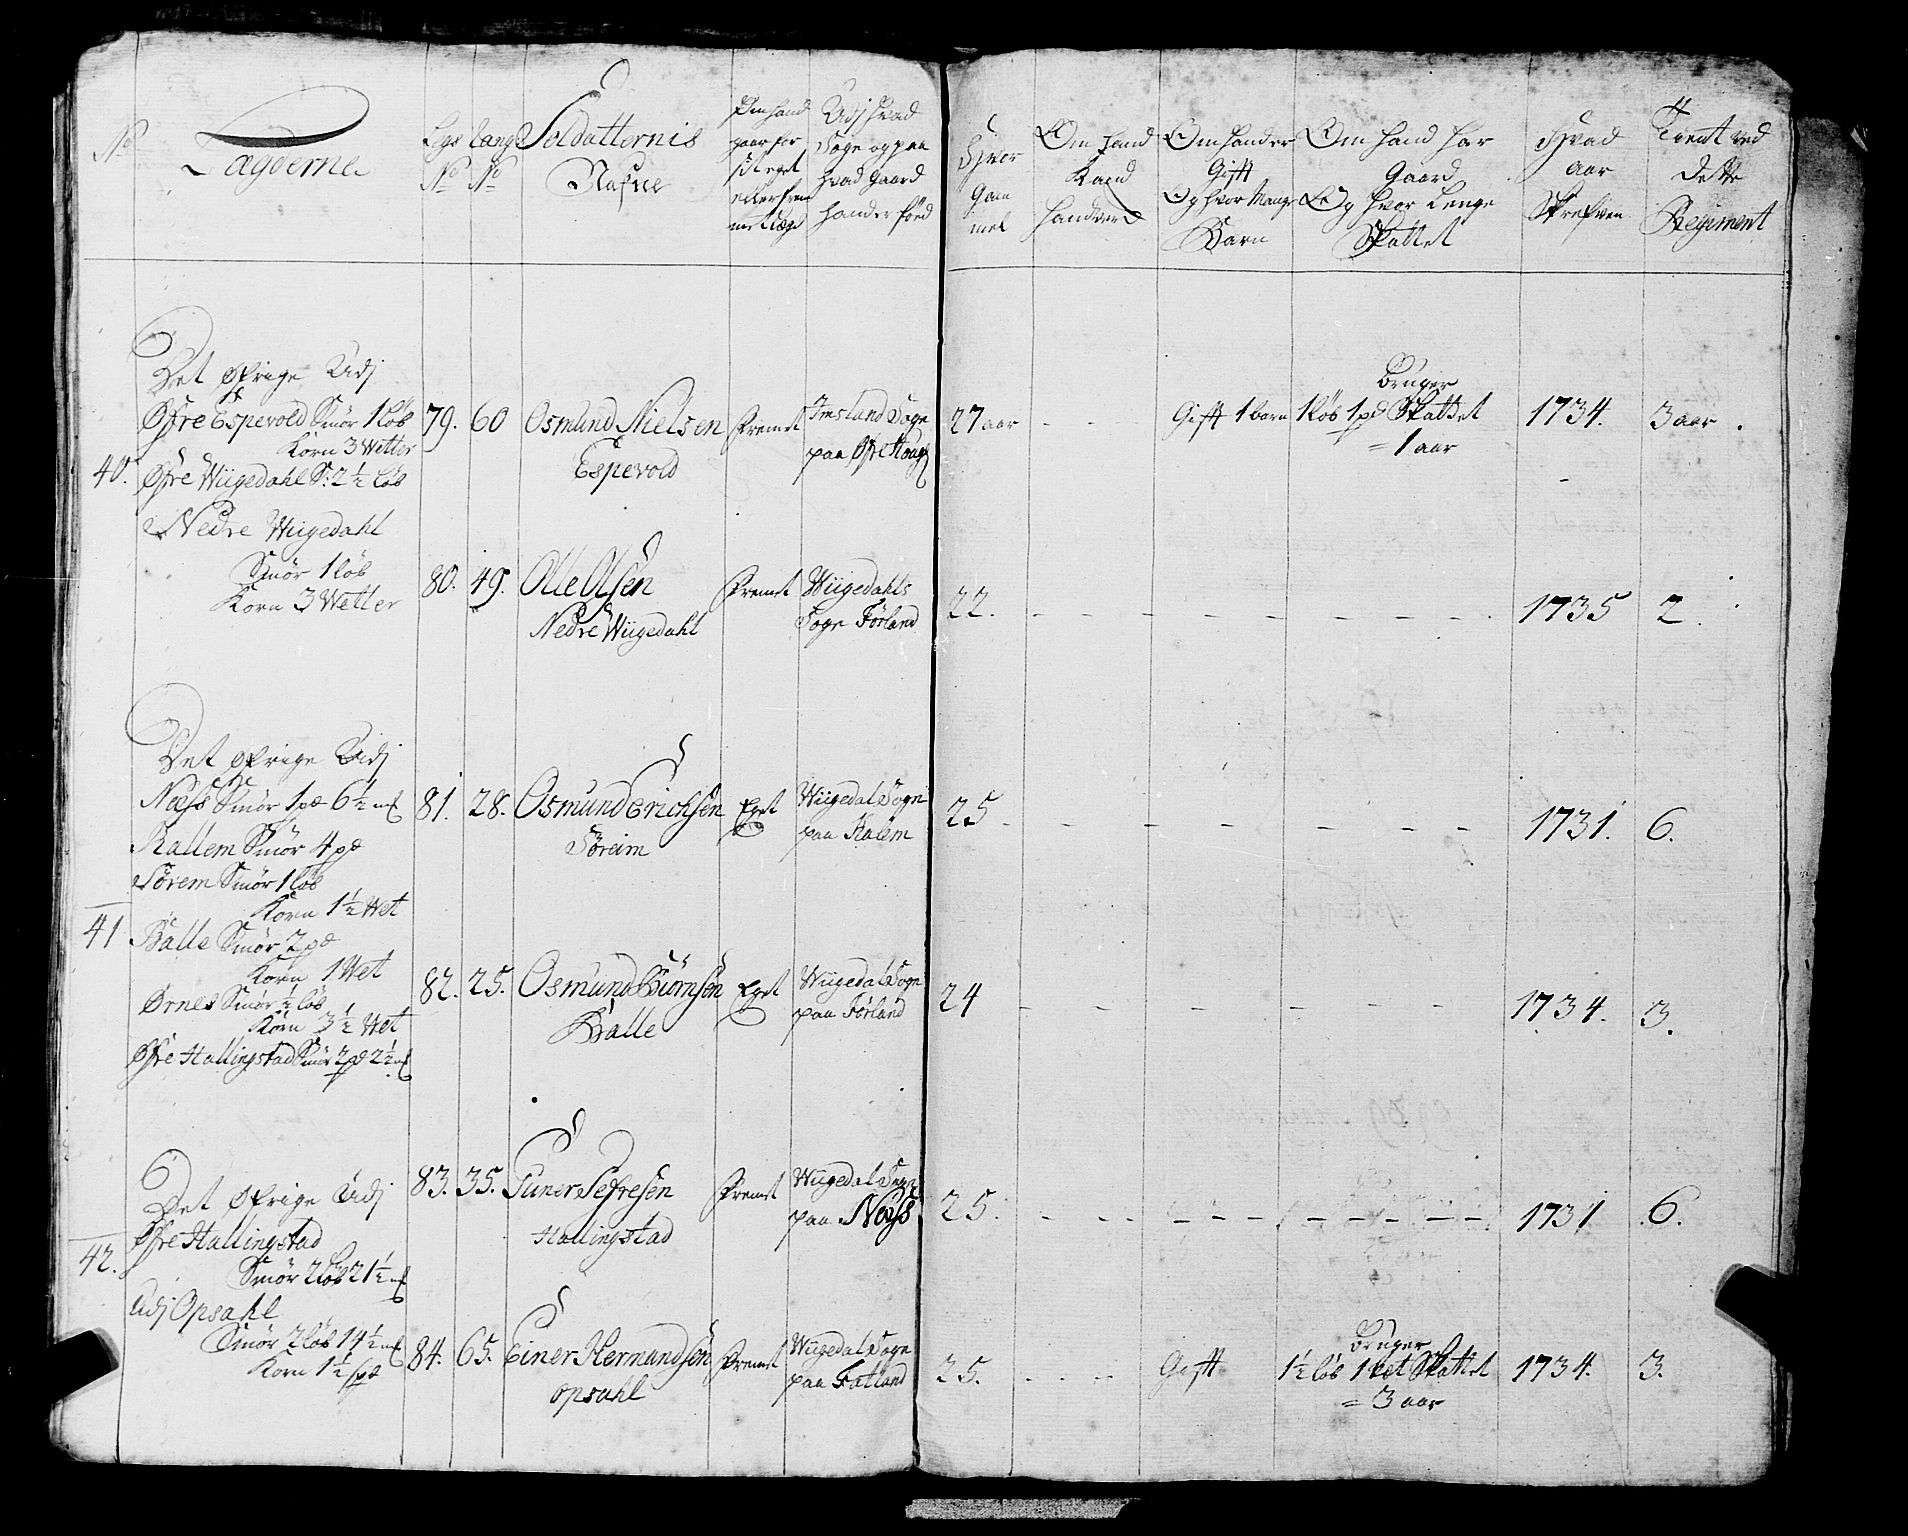 No
Lægderne
Lægs No
Langs No
Soldatternis
Nafne
Om hand
staar for
sit eget
eller frem
met Læge
Udj hvad
Sogn og paa
hvad Gaard
hand er föed
Hvor
Gam
mel
Om hand
Kand
handverk
Om hand er
Gift
Og hvor Mange
Barn
Om hand har
Gaard
Og hvor Lenge
Skattet
Hvad
aar
Skrefven
Tient ved
dette
Regiment
40.
Det øfrige Udj
Øfre Espevold Smör 1 löb
Korn 3 Wetter
Øfre Wiigedahl S: 2 ½ löb
Nedre Wiigedahl
Smör 1 löb
Korn 3 Wetter
79. 60 Osmund Nielsen
Espevold
fremet
Imsland Sogn
paa Øfre Houg
27 aar - - Gift 1 barn
Bruger
1 löb 1 pd Skattet
= 1 aar
1734. 3 aar.
80. 49. Olle Olsen
Nedre Wiigedahl
fremet
Wiigedahls
Sogn Förland
22. - - - - - - - - - 1735 2.
41
Det øfrige Udj
Næss Smör 1 pd 6 ½ mk
Kallem Smör 4 pd
Sörem Smör 1 löb
Korn 1 ½ Wet
Balle Smör 2 pd
Korn 1 Wet
Ornes Smör ½ löb
Korn 3 ½ Wet
Øfre Hallingstad Smör 2 pd 2 ½ mk
81. 28. Osmund Erichsen
Söreim
Eget
Wiigedal Sogn
paa Kalem
25 - - - - - - - - 1731. 6.
82. 25. Osmund Biörnsen
Balle
Eget
Wiigedal Sogn
paa Förland
24 - - - - - - - 1734. 3.
42.
Det øfrige Udj
Øfre Hallingstad
Smör 2 löb 21 ½ mk
Udj Opsahl
Smör 2 löb 14 ½ mk
Korn 1 ½ spd
83. 35. Guner Sefresen
Hallingstad
fremet
Wiigedal Sogn
paa Næss
25. - - - - - - - - - - 1731 6.
84. 65. Einer Hermundsen
Opsahl
fremet
Wiigedal Sogn
paa Fatland
25. - - - Gift
Bruger
1 ½ löb 1 Wet Skattet
= 3 aar
1734. 3.